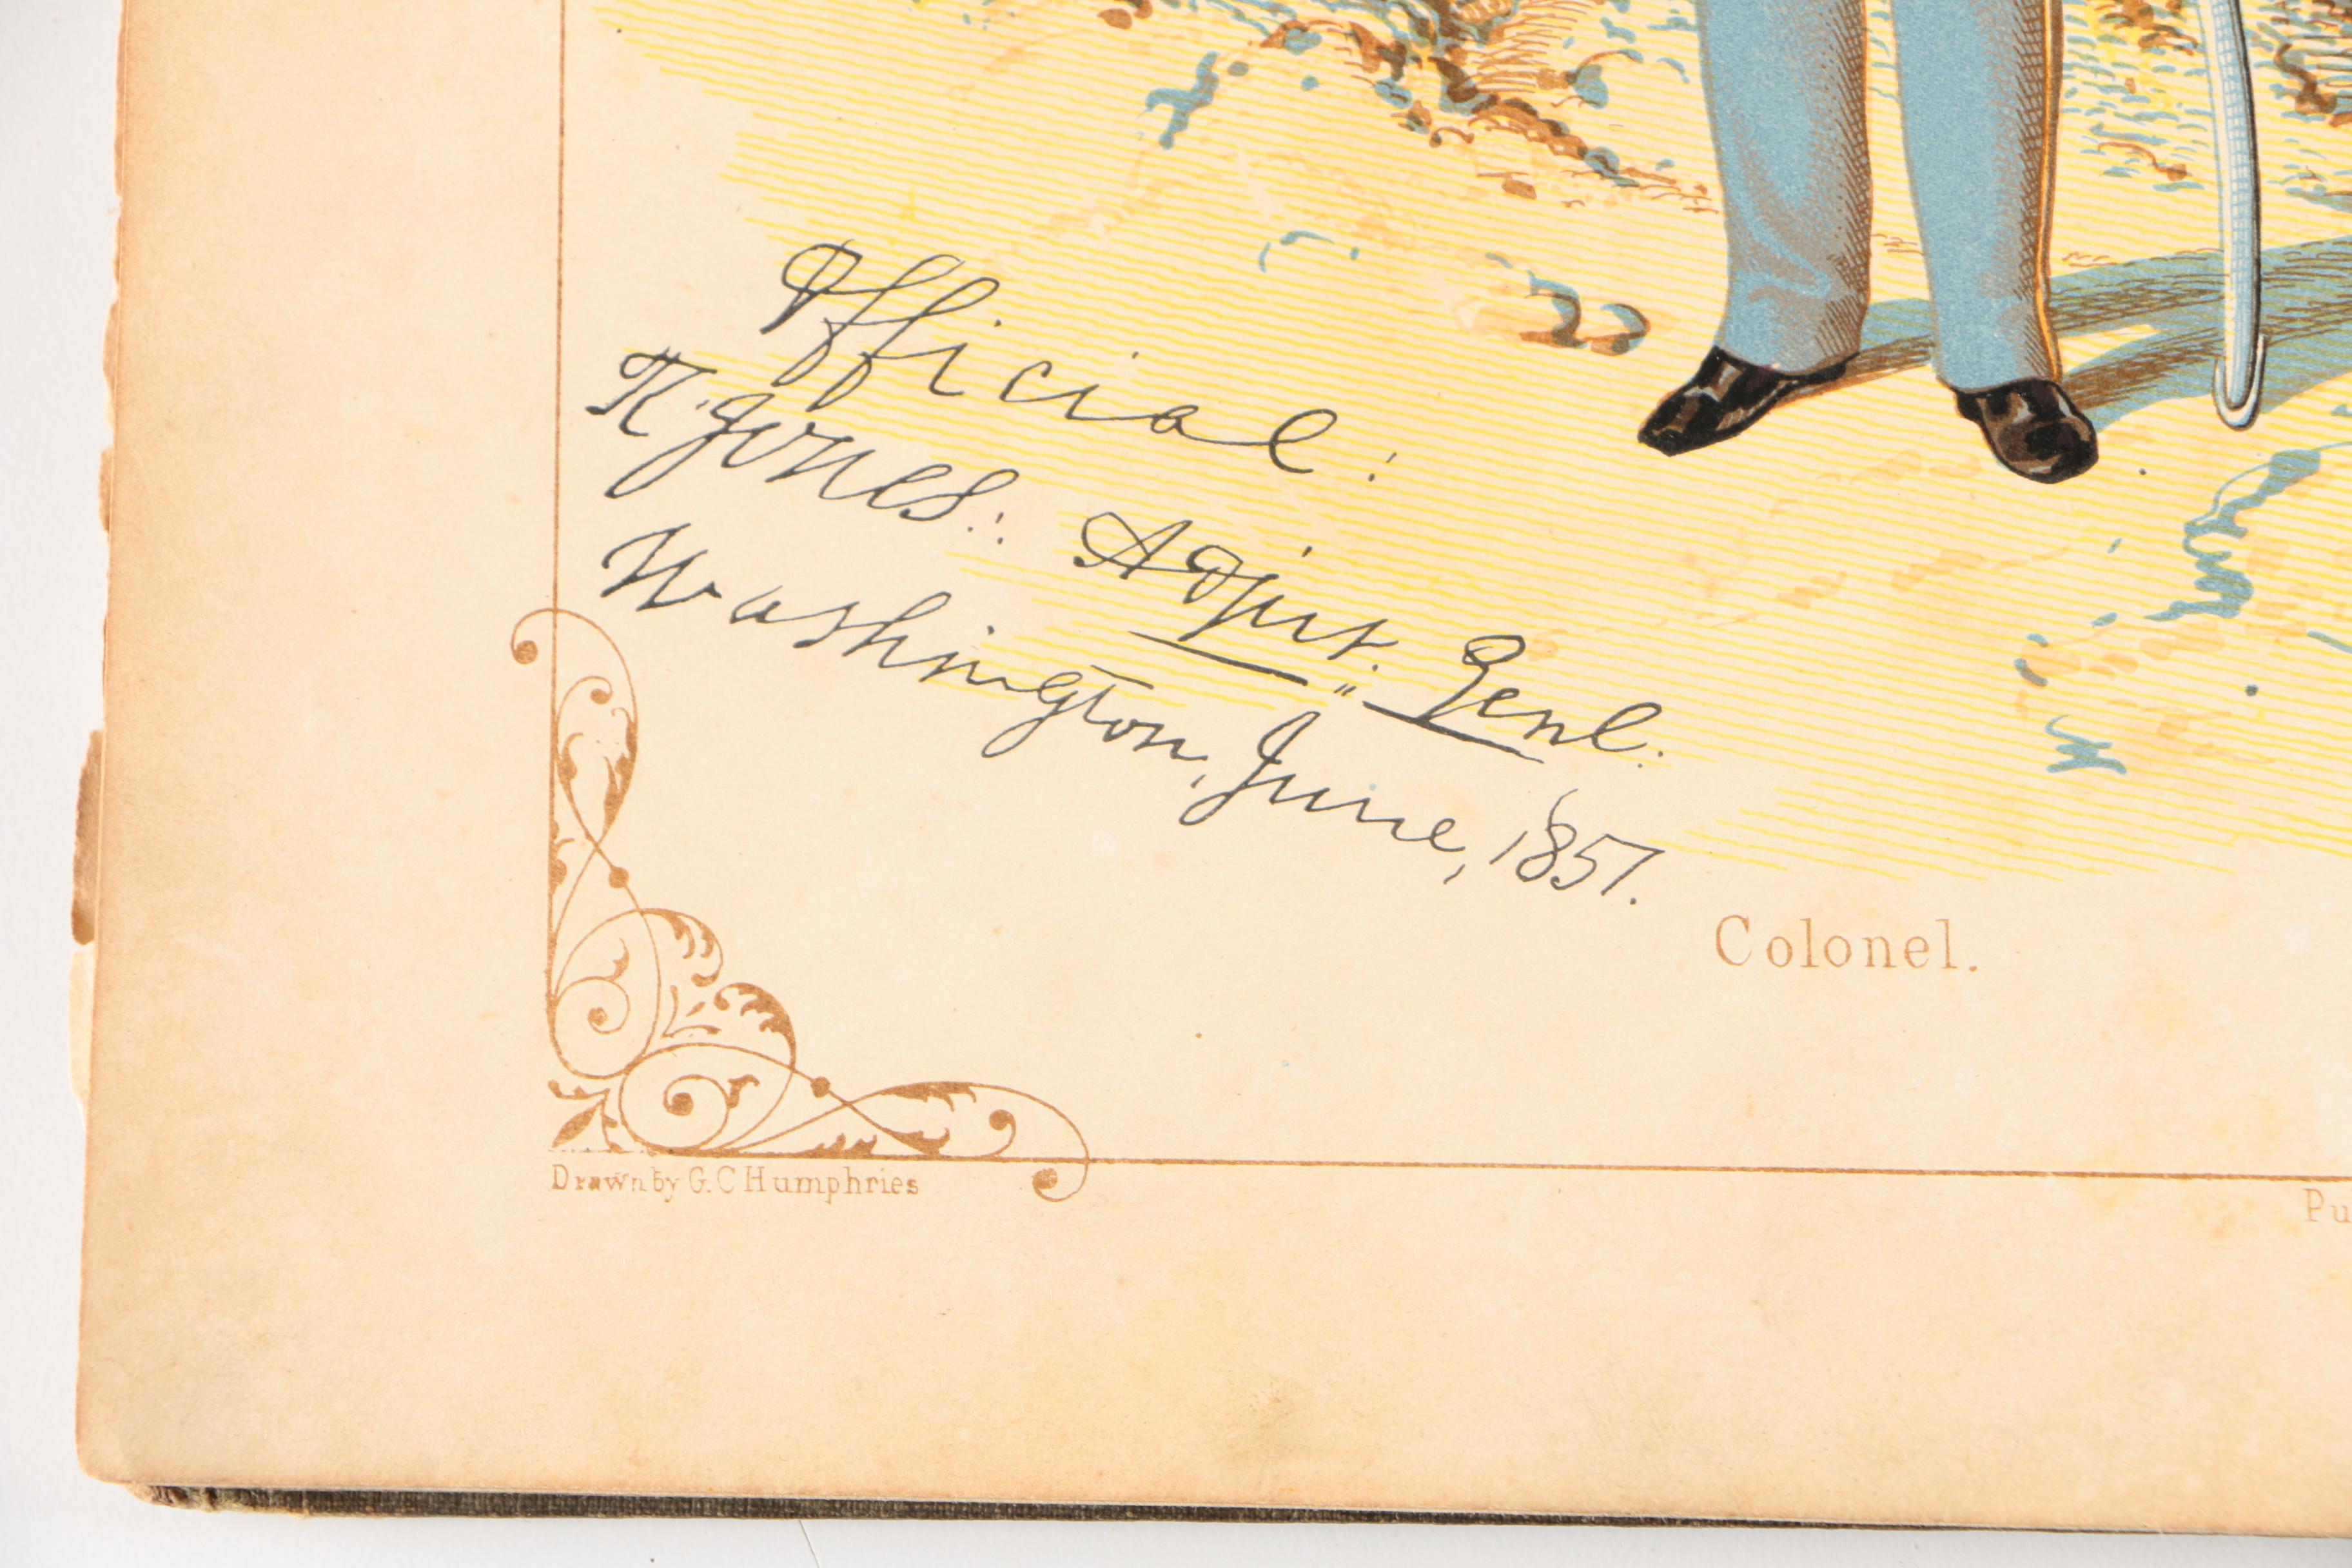 Official:
R. Jones: Adjut. Genl.
Washington, June, 1851.
Colonel.
Drawn by G. C Humphries
Pu